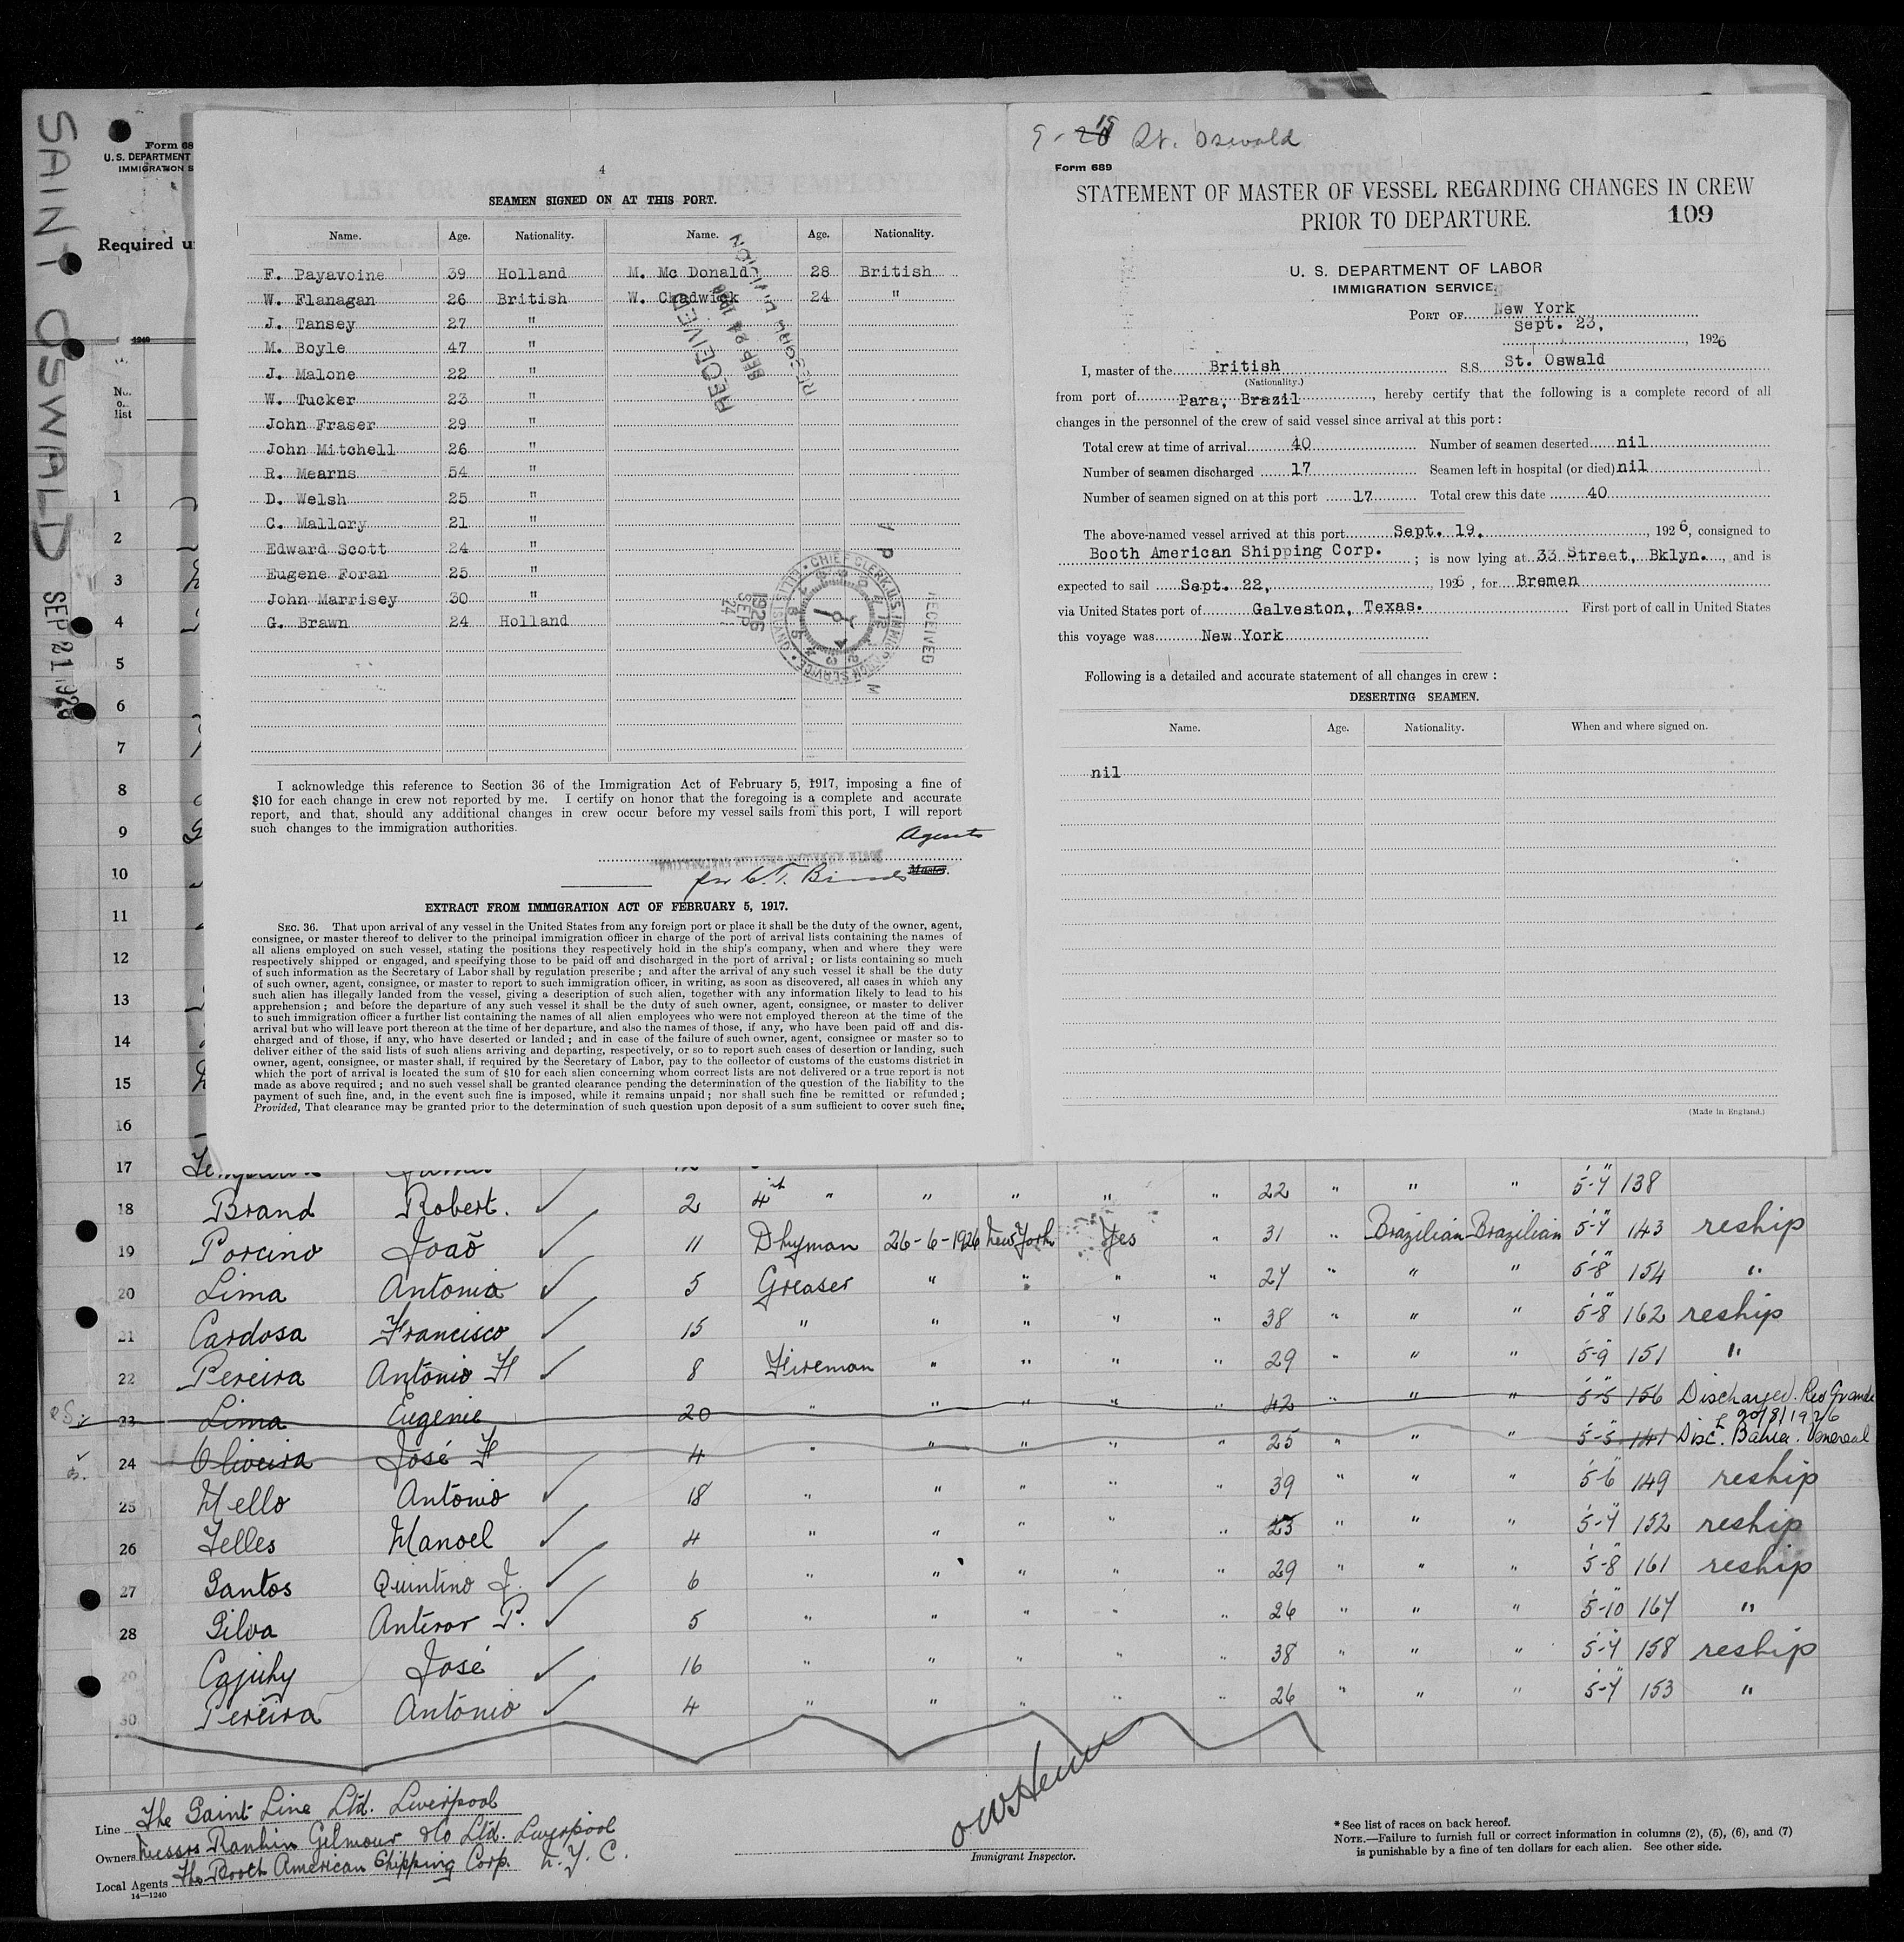 SAINT OSWALD SEP 21 1926
Form 68
U. S. DEPARTMENT
IMMIGRATION S
Required u
No.
list
4
SEAMEN SIGNED ON AT THIS PORT.
Name. Age. Nationality. Name. Age. Nationality.
F. Payavoine 39 Holland M. Mc Donald 28 British
W. Flanagan 26 British W. Chadwick 24 "
J. Tansey 27 "
M. Boyle 47 "
J. Malone 22 "
W. Tucker 23 "
John Fraser 29 "
John Mitchell 26 "
R. Mearns 54 "
D. Welsh 25 "
C. Mallory 21 "
Edward Scott 24 "
Eugene Foran 25 "
John Marrisey 30 "
G. Brawn 24 Holland
RECEIVED
SEP 24 1926
RECEIVED
1926
SEP
24
CHIEF CLERK U.S. IMMIGRATION SERVICE · ELLIS ISLAND
I acknowledge this reference to Section 36 of the Immigration Act of February 5, 1917, imposing a fine of
$10 for each change in crew not reported by me. I certify on honor that the foregoing is a complete and accurate
report, and that, should any additional changes in crew occur before my vessel sails from this port, I will report
such changes to the immigration authorities.
Agents
Master.
EXTRACT FROM IMMIGRATION ACT OF FEBRUARY 5, 1917.
SEC. 36. That upon arrival of any vessel in the United States from any foreign port or place it shall be the duty of the owner, agent,
consignee, or master thereof to deliver to the principal immigration officer in charge of the port of arrival lists containing the names of
all aliens employed on such vessel, stating the positions they respectively hold in the ship's company, when and where they were
respectively shipped or engaged, and specifying those to be paid off and discharged in the port of arrival; or lists containing so much
of such information as the Secretary of Labor shall by regulation prescribe; and after the arrival of any such vessel it shall be the duty
of such owner, agent, consignee, or master to report to such immigration officer, in writing, as soon as discovered, all cases in which any
such alien has illegally landed from the vessel, giving a description of such alien, together with any information likely to lead to his
apprehension; and before the departure of any such vessel it shall be the duty of such owner, agent, consignee, or master to deliver
to such immigration officer a further list containing the names of all alien employees who were not employed thereon at the time of the
arrival but who will leave port thereon at the time of her departure, and also the names of those, if any, who have been paid off and dis-
charged and of those, if any, who have deserted or landed; and in case of the failure of such owner, agent, consignee or master so to
deliver either of the said lists of such aliens arriving and departing, respectively, or so to report such cases of desertion or landing, such
owner, agent, consignee, or master shall, if required by the Secretary of Labor, pay to the collector of customs of the customs district in
which the port of arrival is located the sum of $10 for each alien concerning whom correct lists are not delivered or a true report is not
made as above required; and no such vessel shall be granted clearance pending the determination of the question of the liability to the
payment of such fine, and, in the event such fine is imposed, while it remains unpaid; nor shall such fine be remitted or refunded;
Provided, That clearance may be granted prior to the determination of such question upon deposit of a sum sufficient to cover such fine.
9-19 St. Oswald
Form 689
STATEMENT OF MASTER OF VESSEL REGARDING CHANGES IN CREW
PRIOR TO DEPARTURE. 109
U. S. DEPARTMENT OF LABOR
IMMIGRATION SERVICE.
PORT OF New York
Sept. 23, 1926
I, master of the British SS. St. Oswald
(Nationality.)
from port of Para, Brazil, hereby certify that the following is a complete record of all
changes in the personnel of the crew of said vessel since arrival at this port:
Total crew at time of arrival 40 Number of seamen deserted nil
Number of seamen discharged 17 Seamen left in hospital (or died) nil
Number of seamen signed on at this port 17 Total crew this date 40
The above-named vessel arrived at this port Sept. 19, 1926, consigned to
Booth American Shipping Corp. ; is now lying at 33 Street, Bklyn., and is
expected to sail Sept. 22, 1926, for Bremen
via United States port of Galveston, Texas. First port of call in United States
this voyage was New York
Following is a detailed and accurate statement of all changes in crew:
DESERTING SEAMEN.
Name. Age. Nationality. When and where signed on.
nil
(Made in England.)
1
2
3
4
5
6
7
8
9
10
11
12
13
14
15
16
17
18 Brand Robert. ✓ 2 4th " " " " " 22 " " " 5-7 138
19 Porcino João ✓ 11 Dkyman 26-6-1926 New York Yes " 31 " Brazilian Brazilian 5-7 143 reship
20 Lima Antonio ✓ 5 Greaser " " " " 27 " " " 5-8 154 "
21 Cardosa Francisco ✓ 15 " " " " " 38 " " " 5-8 162 reship
22 Pereira Antonio F ✓ 8 Fireman " " " " 29 " " " 5-9 151 "
23 Lima Eugenie 20 " " " " " 42 " " " 5-5 156 Discharged. Rio Grande
20/8/1926
24 Oliveira José F 4 " " " " " 25 " " " 5-5 141 Disc. Bahia.
25 Mello Antonio ✓ 18 " " " " " 39 " " " 5-6 149 reship
26 Telles Manoel ✓ 4 " " " " " 25 " " " 5-7 152 reship
27 Santos Quintino J. ✓ 6 " " " " " 29 " " " 5-8 161 reship
28 Silva Anteror P. ✓ 5 " " " " " 26 " " " 5-10 167 "
29 Cajuhy José ✓ 16 " " " " " 38 " " " 5-7 158 reship
30 Pereira Antonio ✓ 4 " " " " " 26 " " " 5-7 153 "
Line The Saint Line Ltd. Liverpool
Owners Messrs Rankin Gilmour & Co Ltd. Liverpool
Local Agents The Booth American Shipping Corp. N.Y.C.
14—1240
Immigrant Inspector.
* See list of races on back hereof.
NOTE.—Failure to furnish full or correct information in columns (2), (5), (6), and (7)
is punishable by a fine of ten dollars for each alien. See other side.